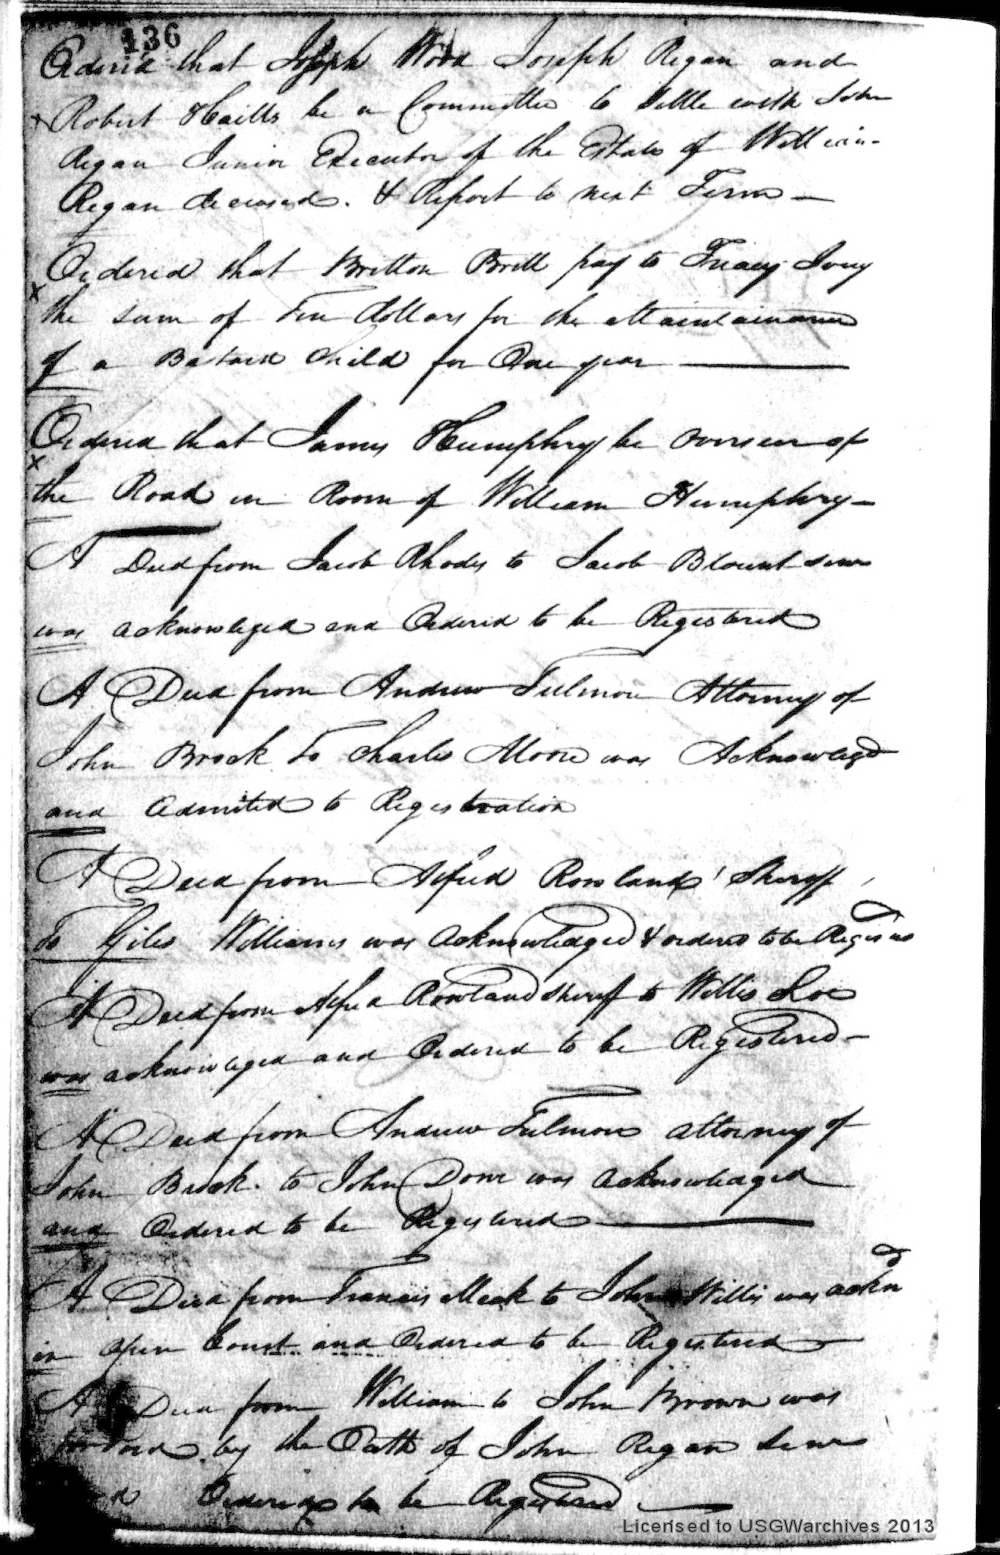 136
Ordered that Joseph Wood Joseph Regan and
Robert Haills be a Committee to Settle with John
Regan Junior Executor of the Estate of William
Regan deceased. & Report to next Term —
Ordered that Britton Britt pay to Tracy Ivey
x
the sum of Ten dollars for the Maintainance
of a Bastard Child for One year
Ordered that James Humphry be overseer of
x
the Road in Room of William Humphry —
A Deed from Jacob Rhodes to Jacob Blount senr
was acknowleged and Ordered to be Registered
A Deed from Andrew Attorney of
John Brock To Charles Moore was Acknowleged
and admited to Registration
A Deed from Alfred Rowland Sheriff
to Giles Williams was acknowledged & ordered to be
A Deed from Alfred Rowland Sheriff to Willis
was acknowleged and Ordered to be Registered —
A Deed from Andrew attorney of
John Brock. to John was acknowledged
and Ordered to be Registered
A Deed from Francis Meek to John Willis was acknd
in open Court and Ordered to be Registered
A Deed from William to John Brown was
by the Oath of John Regan Senr
Ordered to be Registered —
Licensed to USGWarchives 2013